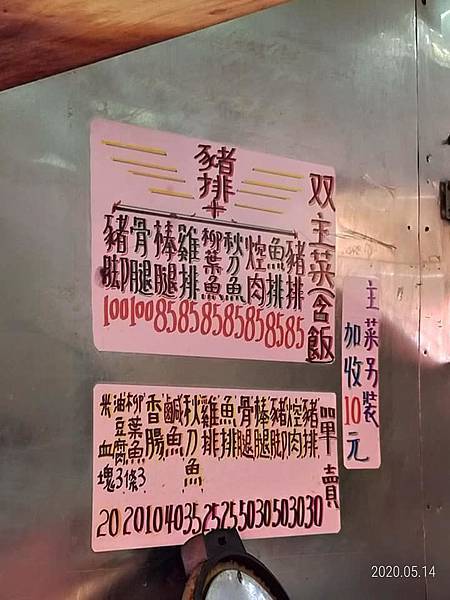 双主菜(含飯)
豬排+
豬排
魚排
焢肉
秋刀魚
柳葉魚
雞排
棒腿
骨腿
豬腳
100 100 85 85 85 85 85 85 85
主菜另裝
加收10元
單賣
豬排
焢肉
豬腳
棒腿
骨腿
魚排
雞排
秋刀魚
鹹魚
香腸
柳葉魚3條
油豆腐3塊
米血
20 20 10 40 35 25 25 50 30 50 30 30
2020.05.14